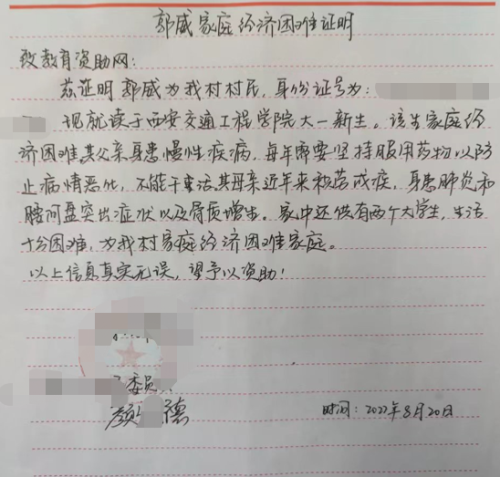 郭威家庭经济困难证明
致教育资助网：
兹证明郭威为我村村民，身份证号为：
现就读于西安交通工程学院大一新生。该生家庭经
济困难其父亲身患慢性疾病，每年需要坚持服用药物以防
止病情恶化，不能干重活其母亲近年来积劳成疾，身患肺炎和
腰间盘突出症状以及骨质增生。家中还供有两个大学生，生活
十分困难，为我村家庭经济困难家庭。
以上信息真实无误，望予以资助！
委员
颜 德
时间：2022年8月20日